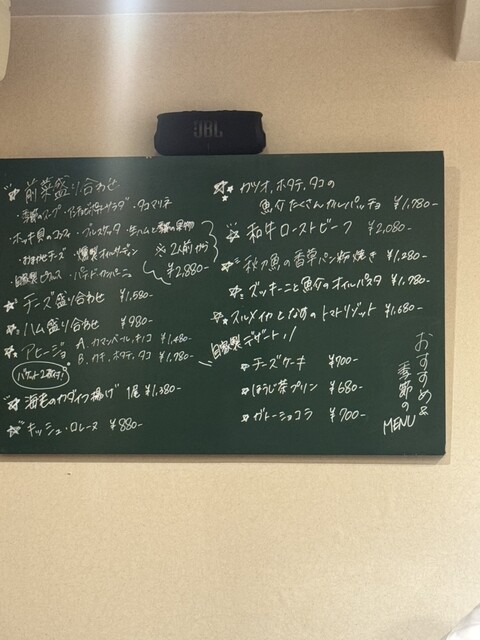 JBL
前菜盛り合わせ
・タコマリネ
・ホッキ貝のコンフィ ・ブルスケッタ ・生ハムと季節の果物
・おまかせチーズ ・燻製オイルサーディン ※2人前から
・自家製ピクルス ・パテドカンパーニュ ¥2,880-
チーズ盛り合わせ ¥1,580-
ハム盛り合わせ ¥980-
アヒージョ A. カマンベール、キノコ ¥1,480-
B. カキ、ホタテ、タコ ¥1,780-
バケット2枚付!
海老のカダイフ揚げ 1尾 ¥1,380-
キッシュ・ロレーヌ ¥880-
カツオ、ホタテ、タコの
魚介たくさんカルパッチョ ¥1,780-
和牛ローストビーフ ¥2,080-
秋刀魚の香草パン粉焼き ¥1,280-
ズッキーニと魚介のオイルパスタ ¥1,780-
スルメイカとなすのトマトリゾット ¥1,680-
自家製デザート!
チーズケーキ ¥700-
ほうじ茶プリン ¥680-
ガトーショコラ ¥700-
おすすめ&
季節の
MENU